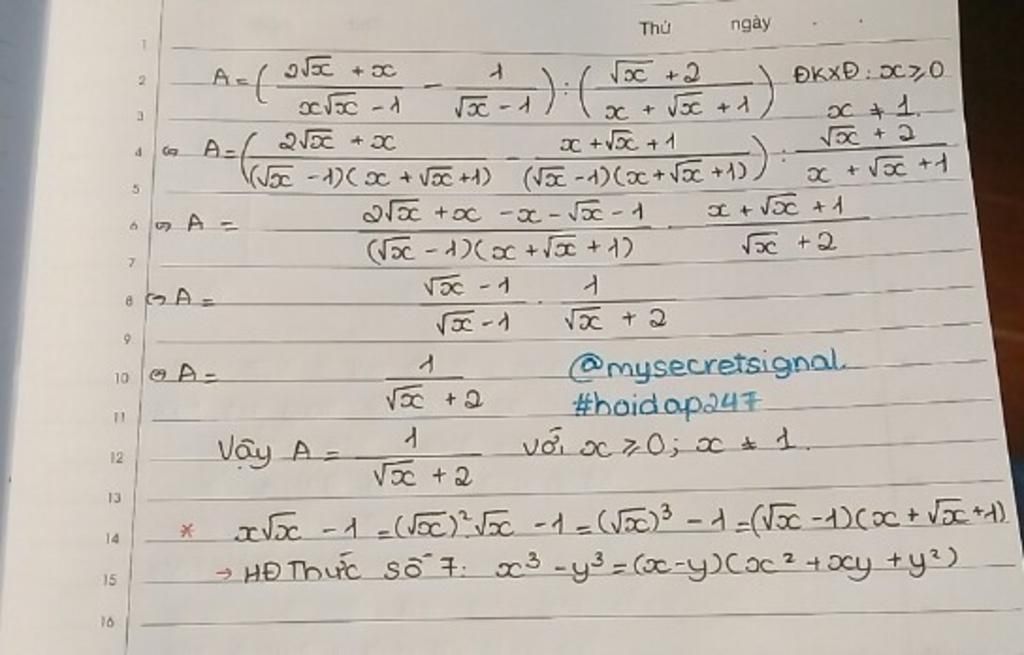 Thứ ngày . .
1
2 A = ( (2√x + x)/(x√x - 1) - 1/(√x - 1) ) : ( (√x + 2)/(x + √x + 1) ) ĐKXĐ: x ⩾ 0
3 x ≠ 1.
4 ⇔ A = ( (2√x + x)/((√x - 1)(x + √x + 1)) - (x + √x + 1)/((√x - 1)(x + √x + 1)) ) : (√x + 2)/(x + √x + 1)
5
6 ⇔ A = (2√x + x - x - √x - 1)/((√x - 1)(x + √x + 1)) . (x + √x + 1)/(√x + 2)
7
8 ⇔ A = (√x - 1)/(√x - 1) . 1/(√x + 2)
9
10 ⇔ A = 1/(√x + 2) @mysecretsignal.
11 #hoidap247
12 Vậy A = 1/(√x + 2) với x ⩾ 0; x ≠ 1.
13
14 * x√x - 1 = (√x)².√x - 1 = (√x)³ - 1 = (√x - 1)(x + √x + 1)
15 → HĐ Thức số 7: x³ - y³ = (x - y)(x² + xy + y²)
16